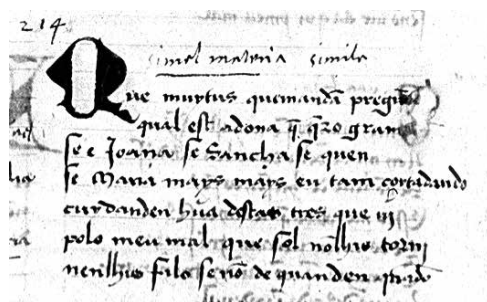 214
simel materia simile
Que muytus quemandã pregũ
qual est adona q̃ q̃ro gram
se e Joana se Sancha se quen
se Maria mays mays eu tam coytado ando
cuydanden hũa destas tres que ui
polo meu mal que sol nõlhis torni
nenlhis falo senõ de quanden qñdo